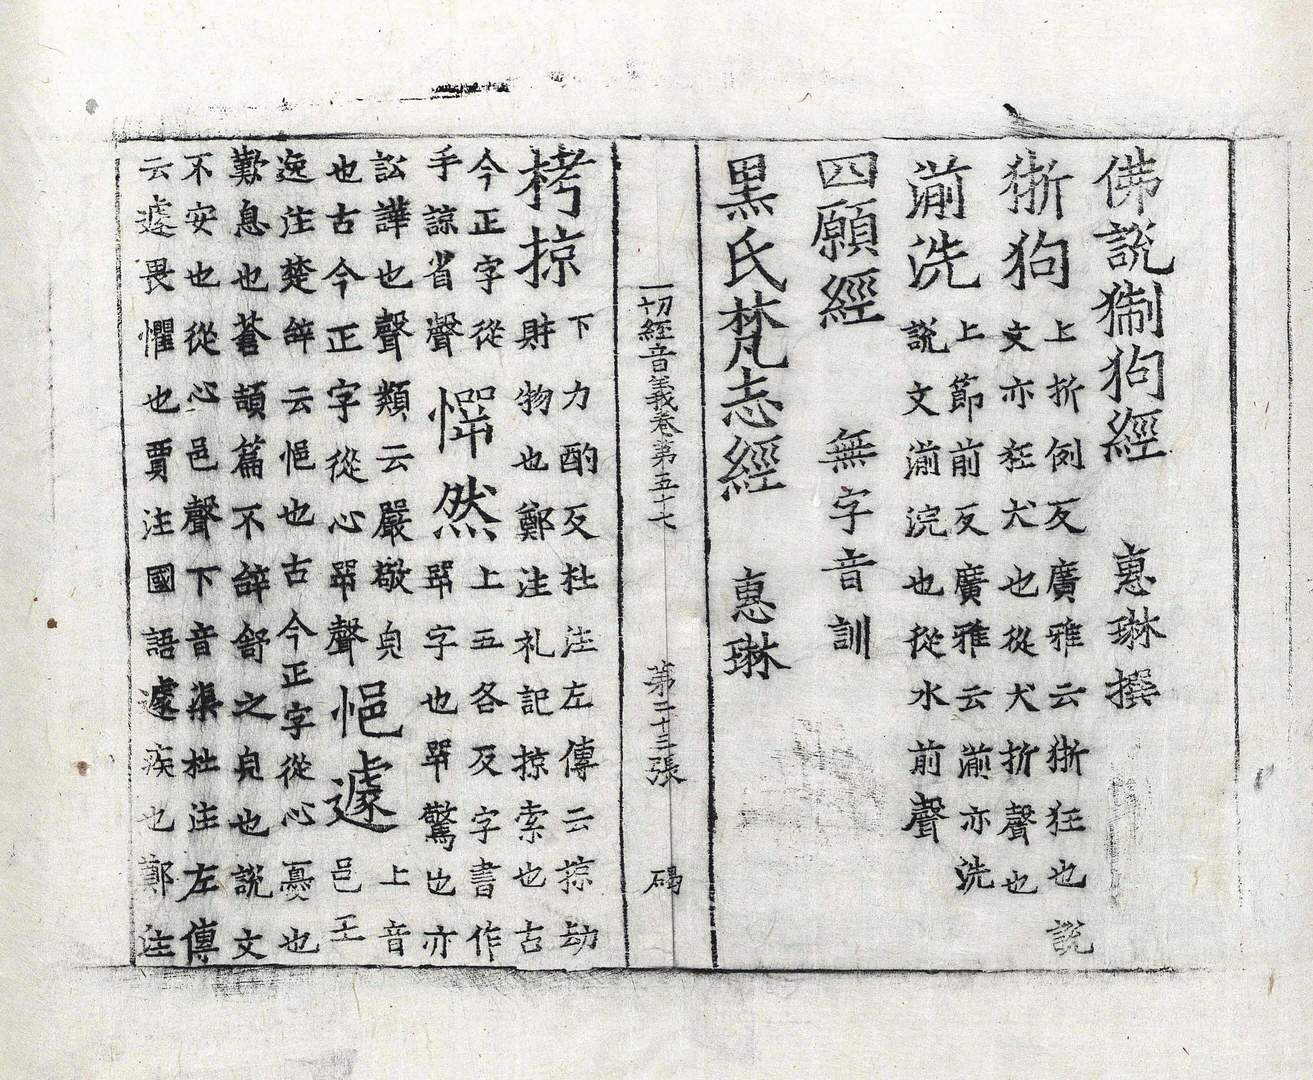 佛說猘狗經　惠琳撰
狾狗　上折例反廣雅云狾狂也說
文亦狂犬也從犬折聲也
湔洗　上節前反廣雅云湔亦洗
說文湔浣也從水前聲
四願經　無字音訓
黑氏梵志經　惠琳
一切經音義卷第五十七　第二十三張　碣
栲掠　下力酌反杜注左傳云掠劫
財物也鄭注礼記掠索也古
今正字從
手諒省聲　憚然　上五各反字書作
咢字也咢驚也亦
訟譁也聲類云嚴敬皃
也古今正字從心咢聲　悒遽　上音
邑王
逸注楚辝云悒也古今正字從心憂也
歎息也蒼頡篇不辝舒之皃也說文
不安也從心邑聲下音渠杜注左傳
云遽畏懼也賈注國語遽疾也鄭注